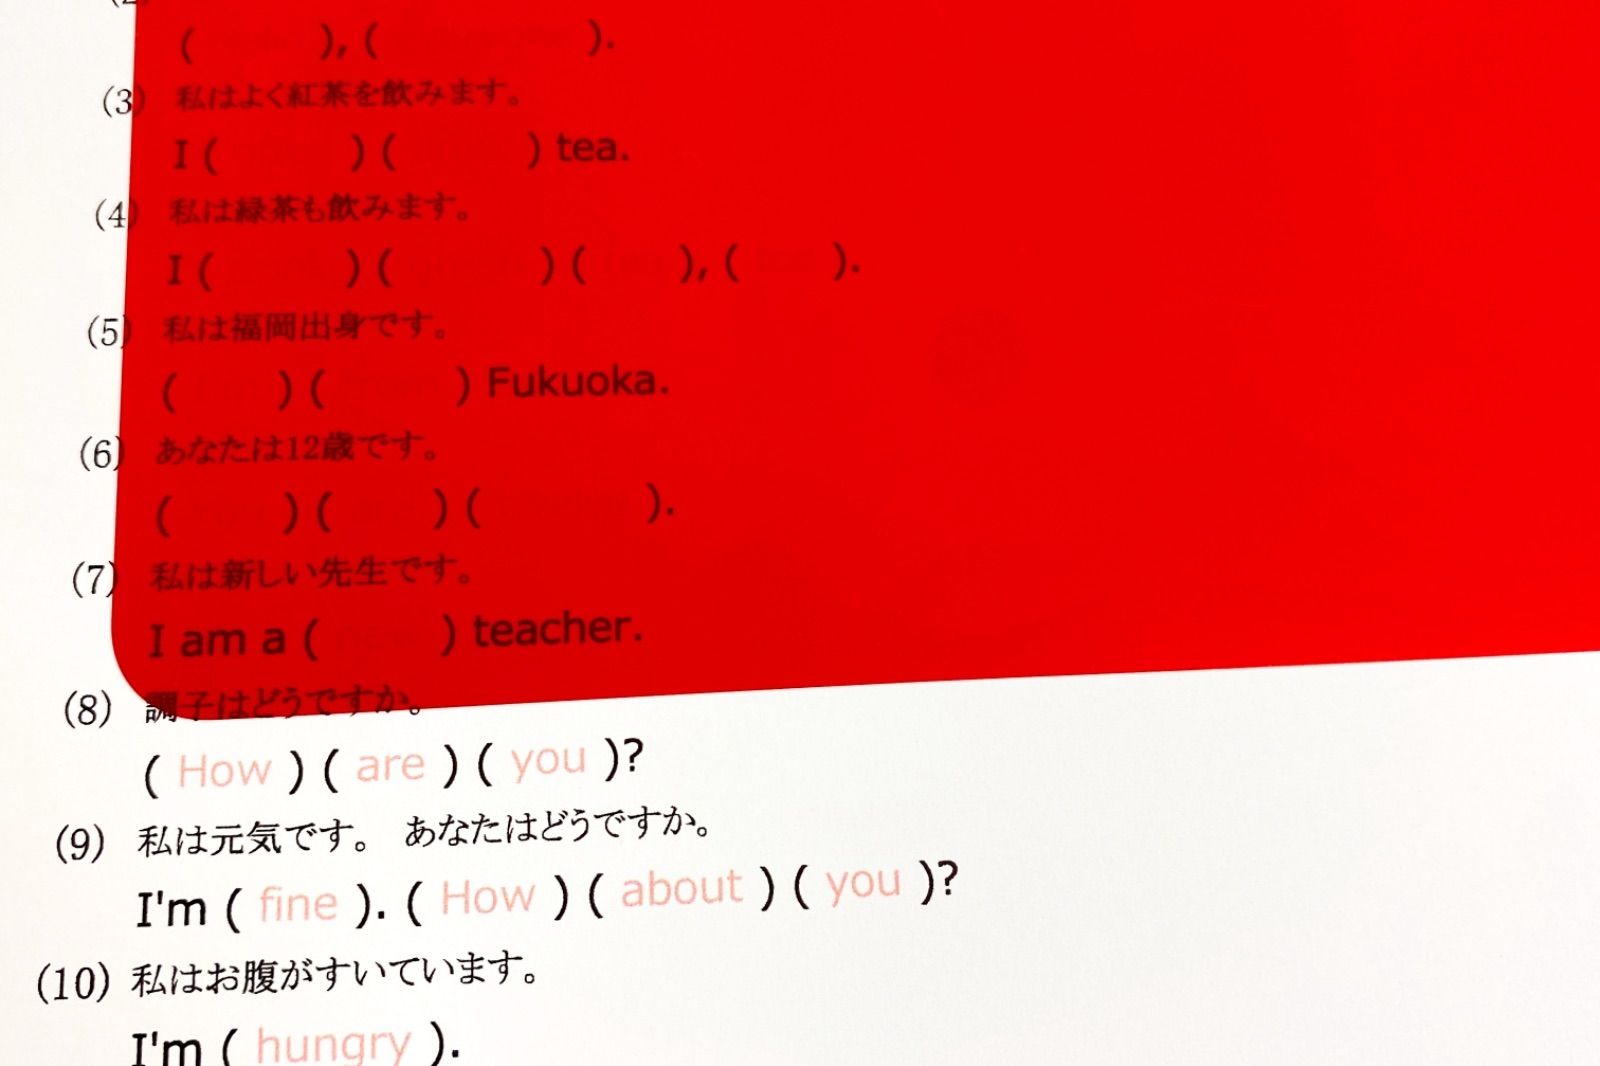 (     ), (     ).
(3) 私はよく紅茶を飲みます。
I (     ) (     ) tea.
(4) 私は緑茶も飲みます。
I (     ) ( green ) ( tea ), ( too ).
(5) 私は福岡出身です。
(     ) ( from ) Fukuoka.
(6) あなたは12歳です。
( You ) ( are ) ( twelve ).
(7) 私は新しい先生です。
I am a ( new ) teacher.
(8) 調子はどうですか。
( How ) ( are ) ( you )?
(9) 私は元気です。 あなたはどうですか。
I'm ( fine ). ( How ) ( about ) ( you )?
(10) 私はお腹がすいています。
I'm ( hungry ).